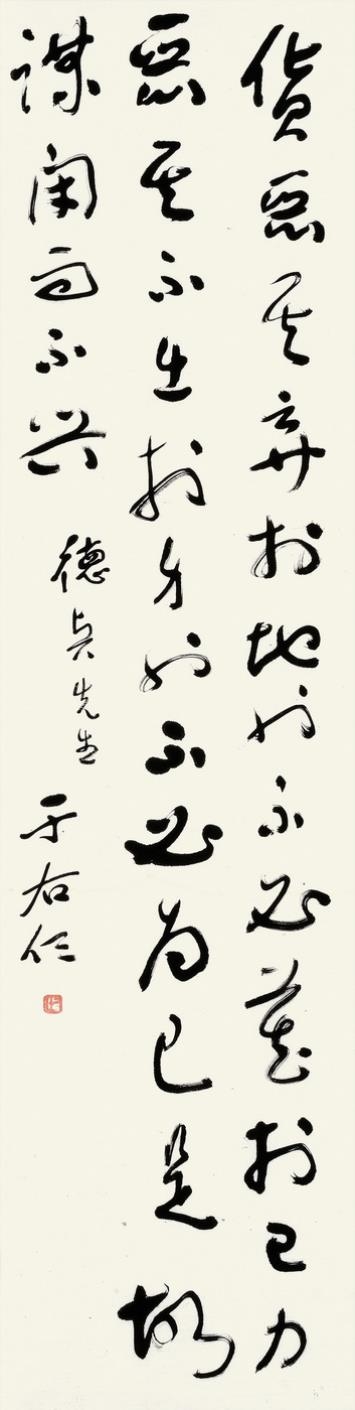 貨惡其棄於地也不必藏於己力
惡其不出於身也不必為己是故
謀閉而不興
德先生
于右任